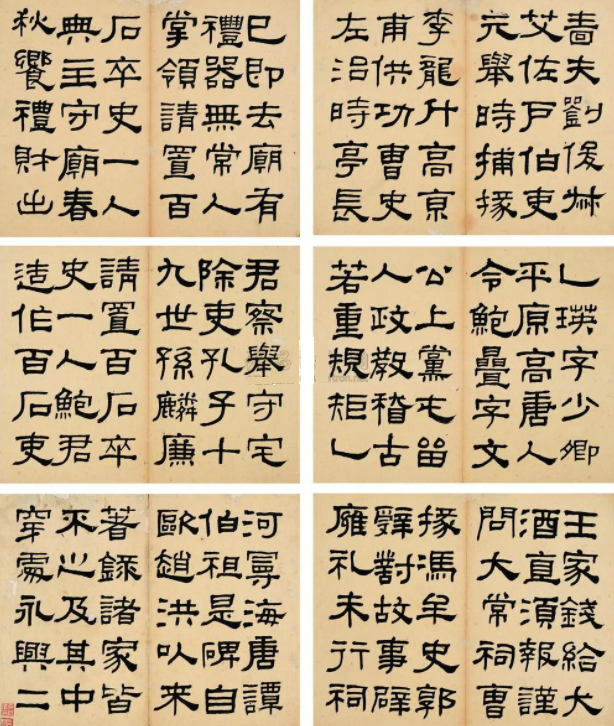 嗇夫劉俊
艾佐戶伯吏
元舉時捕掾
李龍升高京
甫供功曹史
左沿時亭長
已即去廟有
禮器無常人
掌領請置百
石卒史一人
典主守廟春
秋饗禮財出
乚瑛字少卿
平原高唐人
令鮑疊字文
公上黨屯留
人政教稽古
若重規矩乚
君察舉守宅
除吏孔子十
九世孫麟廉
請置百石卒
史一人鮑君
造作百石吏
王家錢給大
酒直須報謹
問大常祠曹
掾馮牟史郭
辟對故事辟
廱礼未行祠
河尋海唐譚
伯祖是碑自
歐趙洪以來
著錄諸家皆
不之及其中
穿處永興二